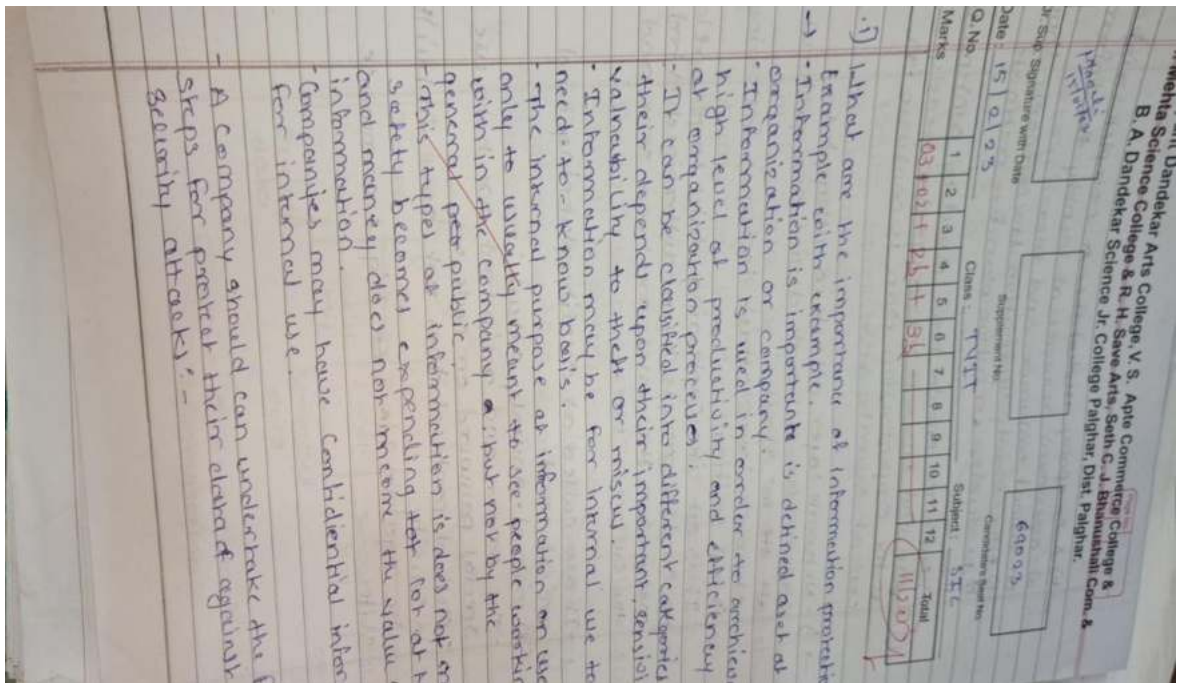 Mehta Science
Dandekar Arts College, V. S. Apte Commerce College &
B. A. Dandekar College & R. H. Save Arts, Seth C. J. Bhanushali Com. &
Dandekar Science Jr. College Palghar, Dist. Palghar.
Jr. Sup. Signature with Date
Supplement No.
Candidate's Seat No.
69093
Date : 15/2/23
Class : TYIT
Subject : SIC
Q. No. 1 2 3 4 5 6 7 8 9 10 11 12 Total
Marks 03 + 02 +
1) What are the importance of information protectio
Example with example.
→ - Information is importante is defined as et of
organization or company.
- Information is used in order to archieve
high level of productivity and efficiency
at organization processes.
- It can be classified into different categories
their depends upon their important sensivi
valnaubility to theft or misuse.
- Information may be for internal use to
need-to-know basis.
- The internal purpose of information on use
only to usually meant to see people workin
with in the company but not by the
general public.
- This types of information is does not
safety becomes expending for at t
and maney does not more the value
information.
- Companies may have contidiential infor
for internal use.
- A company should can undertake the f
steps for protect their data of against
security attacks:-